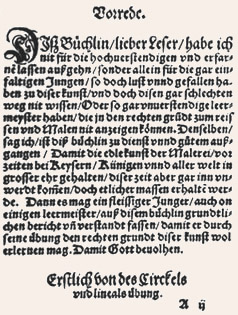 Vorrede.
Diß Büchlin/lieber Leser/habe ich
nit für die hochuerstendigen vnd erfar-
nē lassen außgehn/sonder allein für die gar ein-
faltigen Jungen/so doch lust vnnd gefallen ha-
ben zu diser kunst/vnd doch disen gar schlechten
weg nit wissen/Oder so gar vnuerstendige leer-
meyster haben/die jn den rechten grūdt zum reis
sen vnd Malen nit anzeigen können. Denselben/
sag ich/ist diß büchlin zu dienst vnnd gütem auß-
gangen/Damit die edle kunst der Malerei/vor
zeiten bei Keysern/Künigen vnnd aller welt in
grosser ehr gehalten/diser zeit aber gar inn vn
werdt kommen/doch etlicher massen erhaltē wer
de. Dann es mag ein fleissiger Junger/auch on
einigen leermeister/auß disem büchlin grundtli-
chen bericht vñ verstandt fassen/damit er durch
seine übung den rechten grundt diser kunst wol
erlernen mag. Damit Gott beuolhen.
Erstlich von des Circkels
vnd lineals übung.
A ij